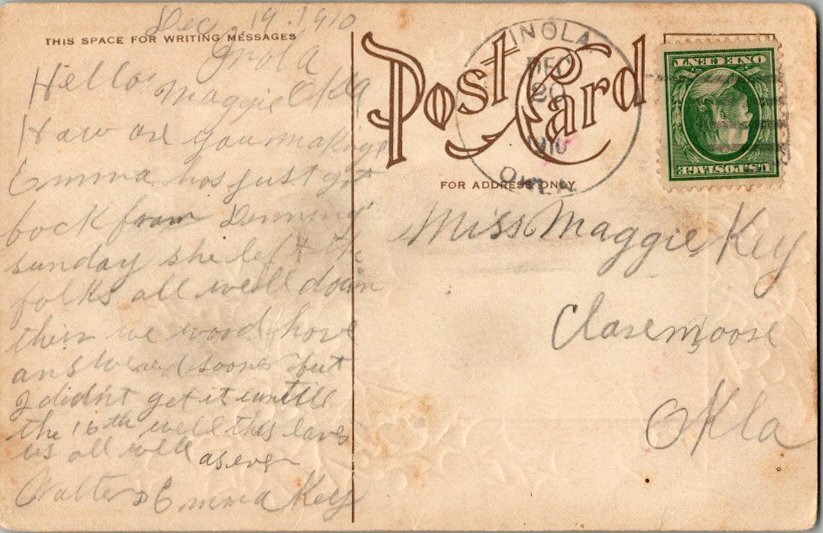 Dec 19. 1910
THIS SPACE FOR WRITING MESSAGES
Inola
Okla
Hello Maggie
How are you making it
Emma has just got
back from Denning
sunday she left the
folks all well down
their we wood have
answered sooner but
I didn't get it untill
the 16th well this leaves
us all well as ever
Walter & Emma Key
Post Card
FOR ADDRESS ONLY
INOLA
DEC
20
1910
OKLA
ONE CENT
U.S. POSTAGE
Miss Maggie Key
Claremoore
Okla